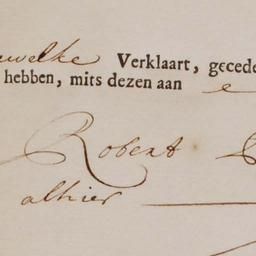 welke Verklaart, gecede
hebben, mits dezen aan
Robert
alhier